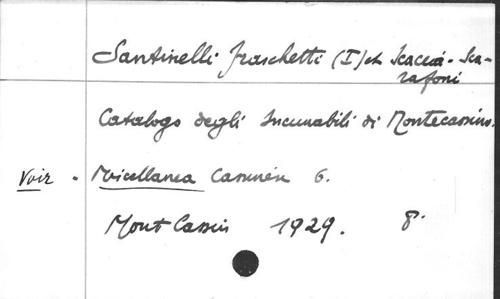 Santinelli Fraschetti (I) et Scaccia-Sca-
rafoni
Catalogo degli Incunabili di Montecassino.
Voir - Miscellanea Casinen 6.
Mont Cassin 1929. 8°.